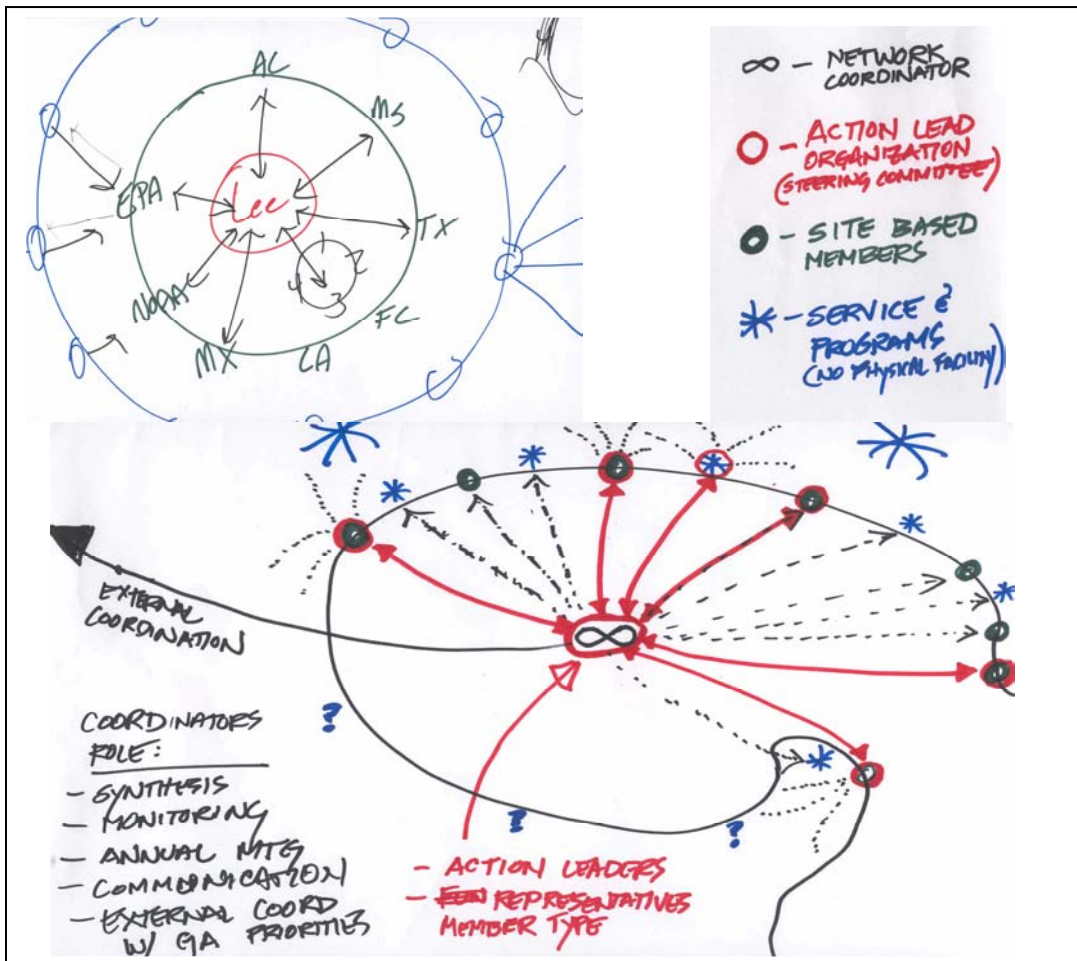 AL
MS
EPA
Lee
TX
NOAA
1 2
4 3
FL
MX
LA
∞ - NETWORK
COORDINATOR
- ACTION LEAD
ORGANIZATION
(STEERING COMMITTEE)
- SITE BASED
MEMBERS
- SERVICE &
PROGRAMS
(NO PHYSICAL FACILITY)
∞
EXTERNAL
COORDINATION
?
?
?
COORDINATORS
ROLE:
- SYNTHESIS
- MONITORING
- ANNUAL MTG
- COMMUNICATION
- EXTERNAL COORD
W/ GA PRIORITIES
- ACTION LEADERS
- REPRESENTATIVES
MEMBER TYPE